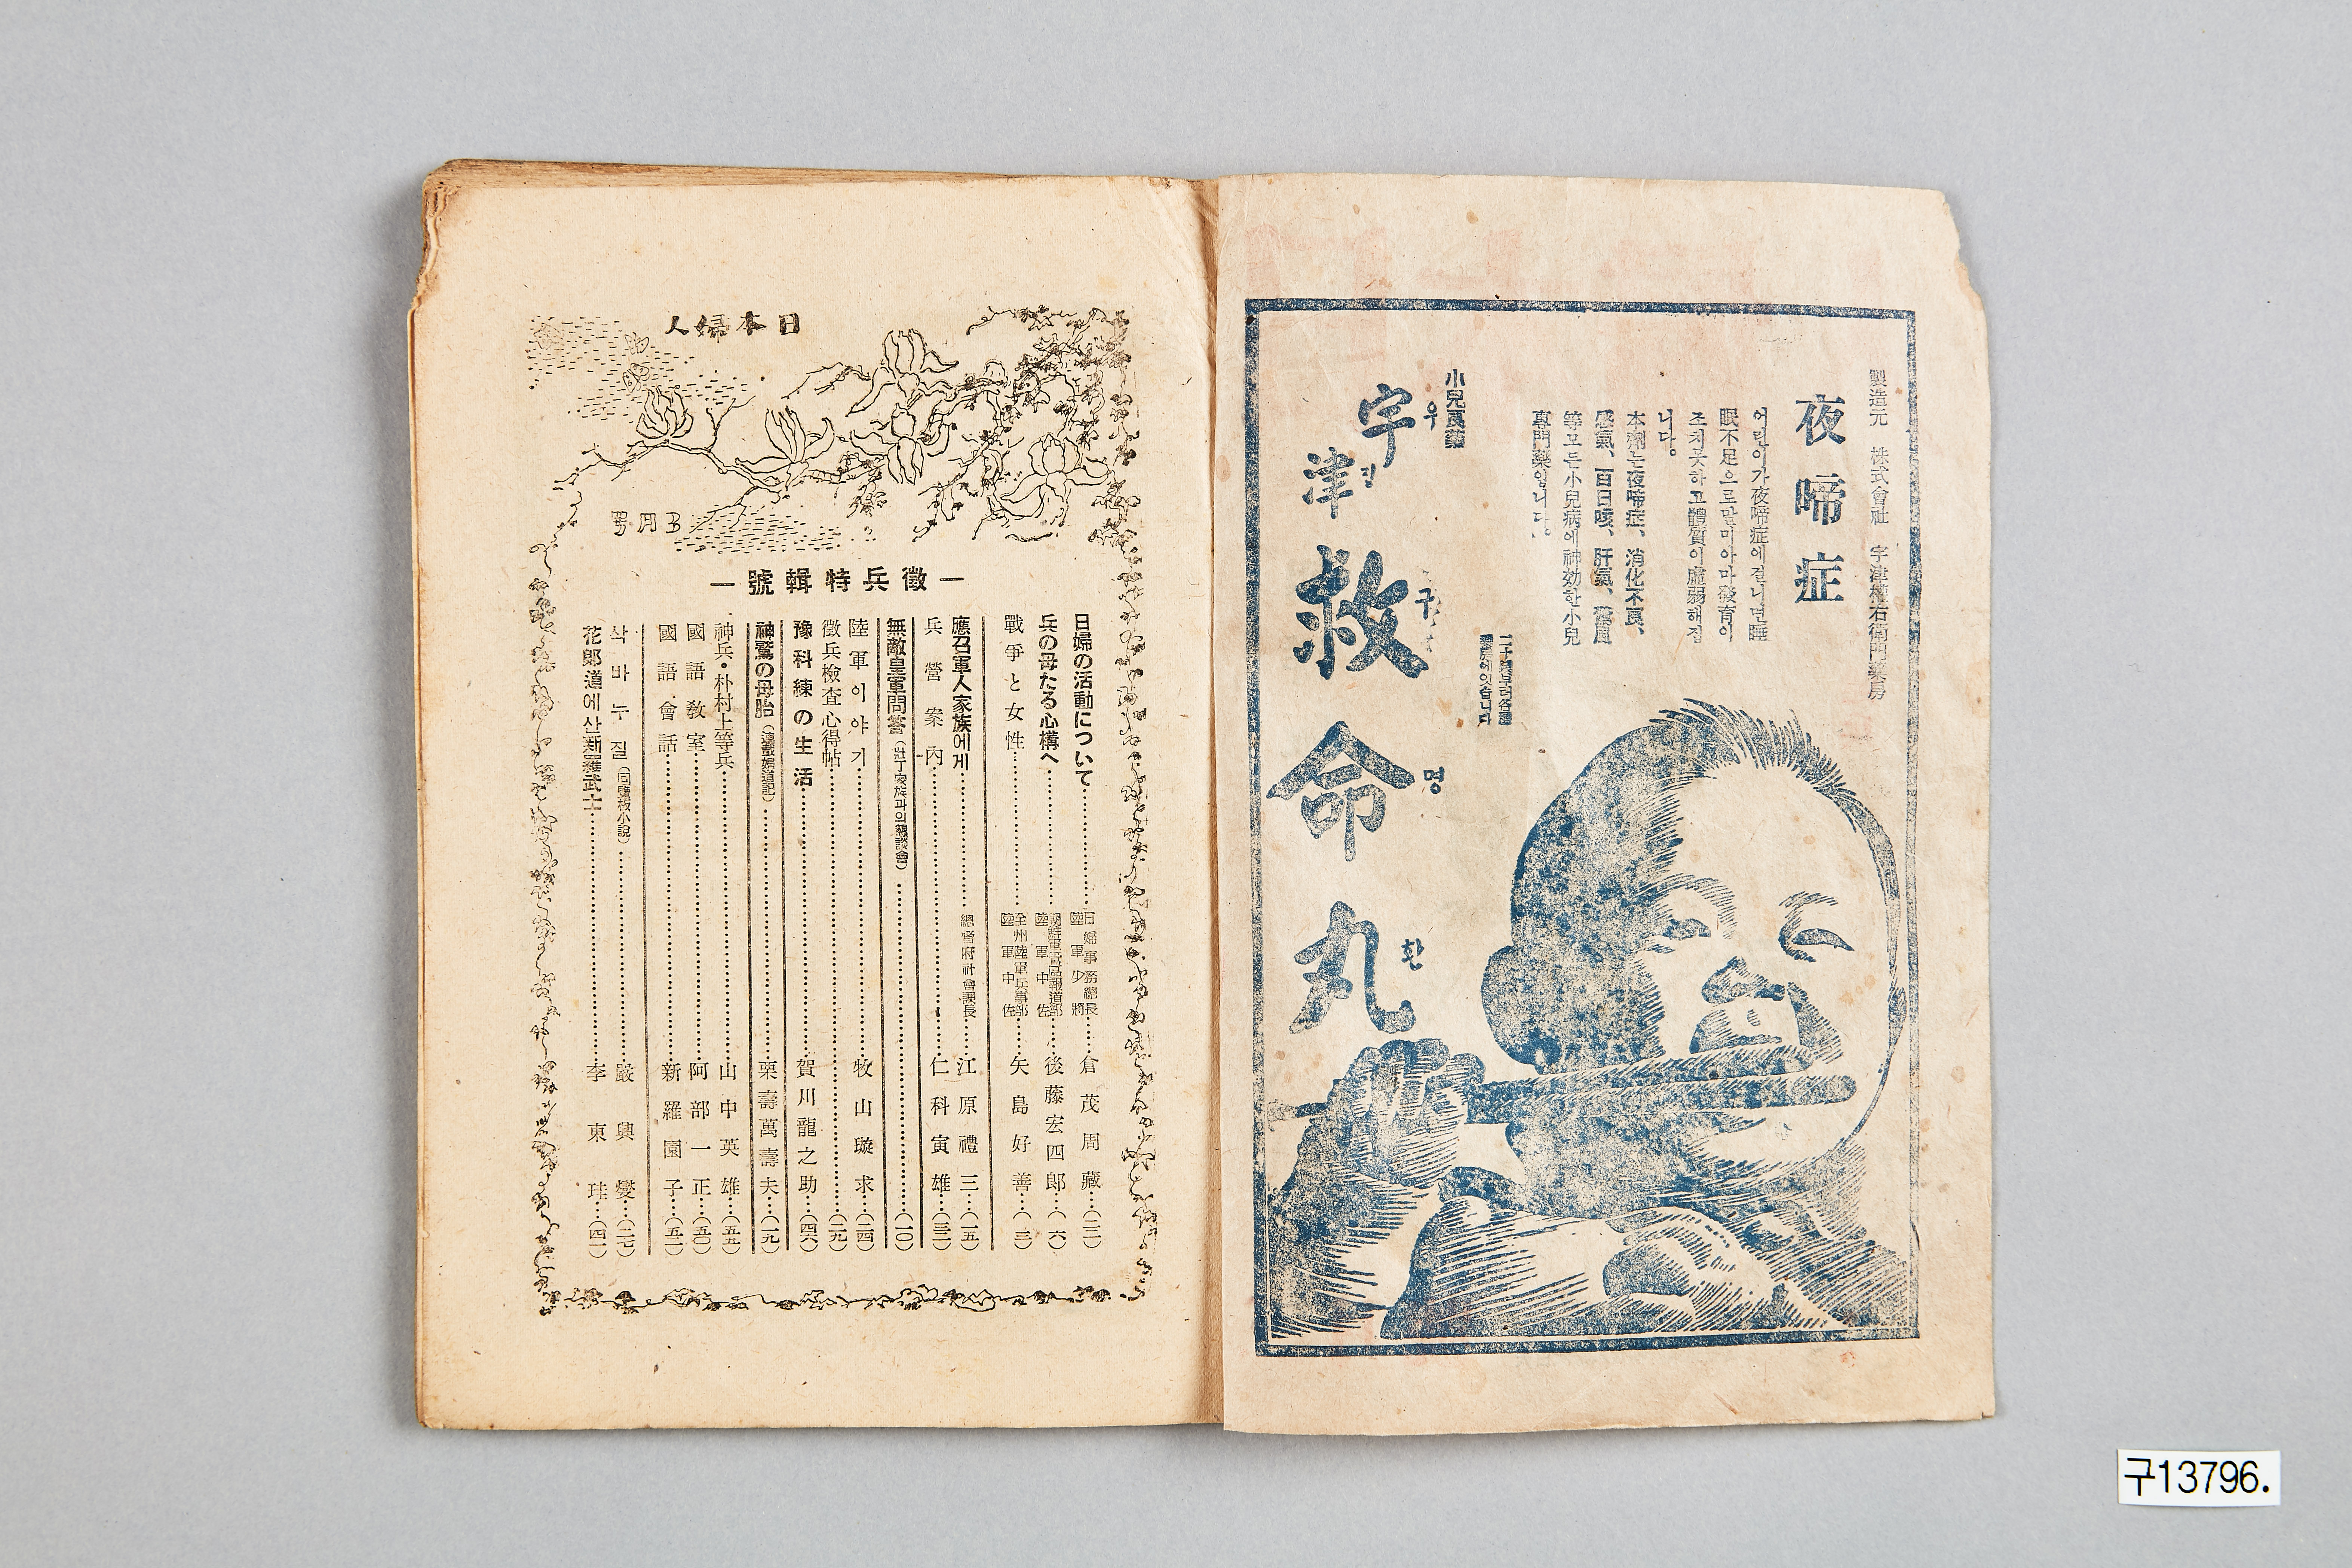 製造元 株式會社 宇津權右衛門藥房
夜啼症
어린이가夜啼症에걸니면睡
眠不足으로말미아마發育이
조치못하고體質이虛弱해집
니다。
本劑는夜啼症、消化不良、
感氣、百日咳、肝氣、驚風
等모든小兒病에神効한小兒
專門藥입니다。
小兒良藥
宇津救命丸
우진구명환
日本婦人
五月号
―徵兵特輯號―
日婦の活動について 日婦事務總長 陸軍少將 倉茂周藏 (二)
兵の母たる心構へ 朝鮮軍 報道部 陸軍中佐 後藤宏四郞 (六)
戰爭と女性 全州陸軍兵事部 陸軍中佐 矢島好善 (三)
應召軍人家族에게 總督府社會課長 江原禮三 (一五)
兵營案內 仁科寅雄 (三二)
無敵皇軍問答 (壯丁家族과의懇談會) (一〇)
陸軍이야기 牧山璇求 (二四)
徵兵檢査心得帖 (二九)
豫科練の生活 賀川龍之助 (四六)
神鷲の母胎 栗壽萬壽夫 (一九)
神兵・朴村上等兵 山中英雄 (五五)
國語敎室 阿部一正 (五〇)
國語會話 新羅園子 (五二)
삭바누질 (回覽板小說) 嚴興燮 (三七)
花郞道에산新羅武士 李東珪 (四一)
구13796.